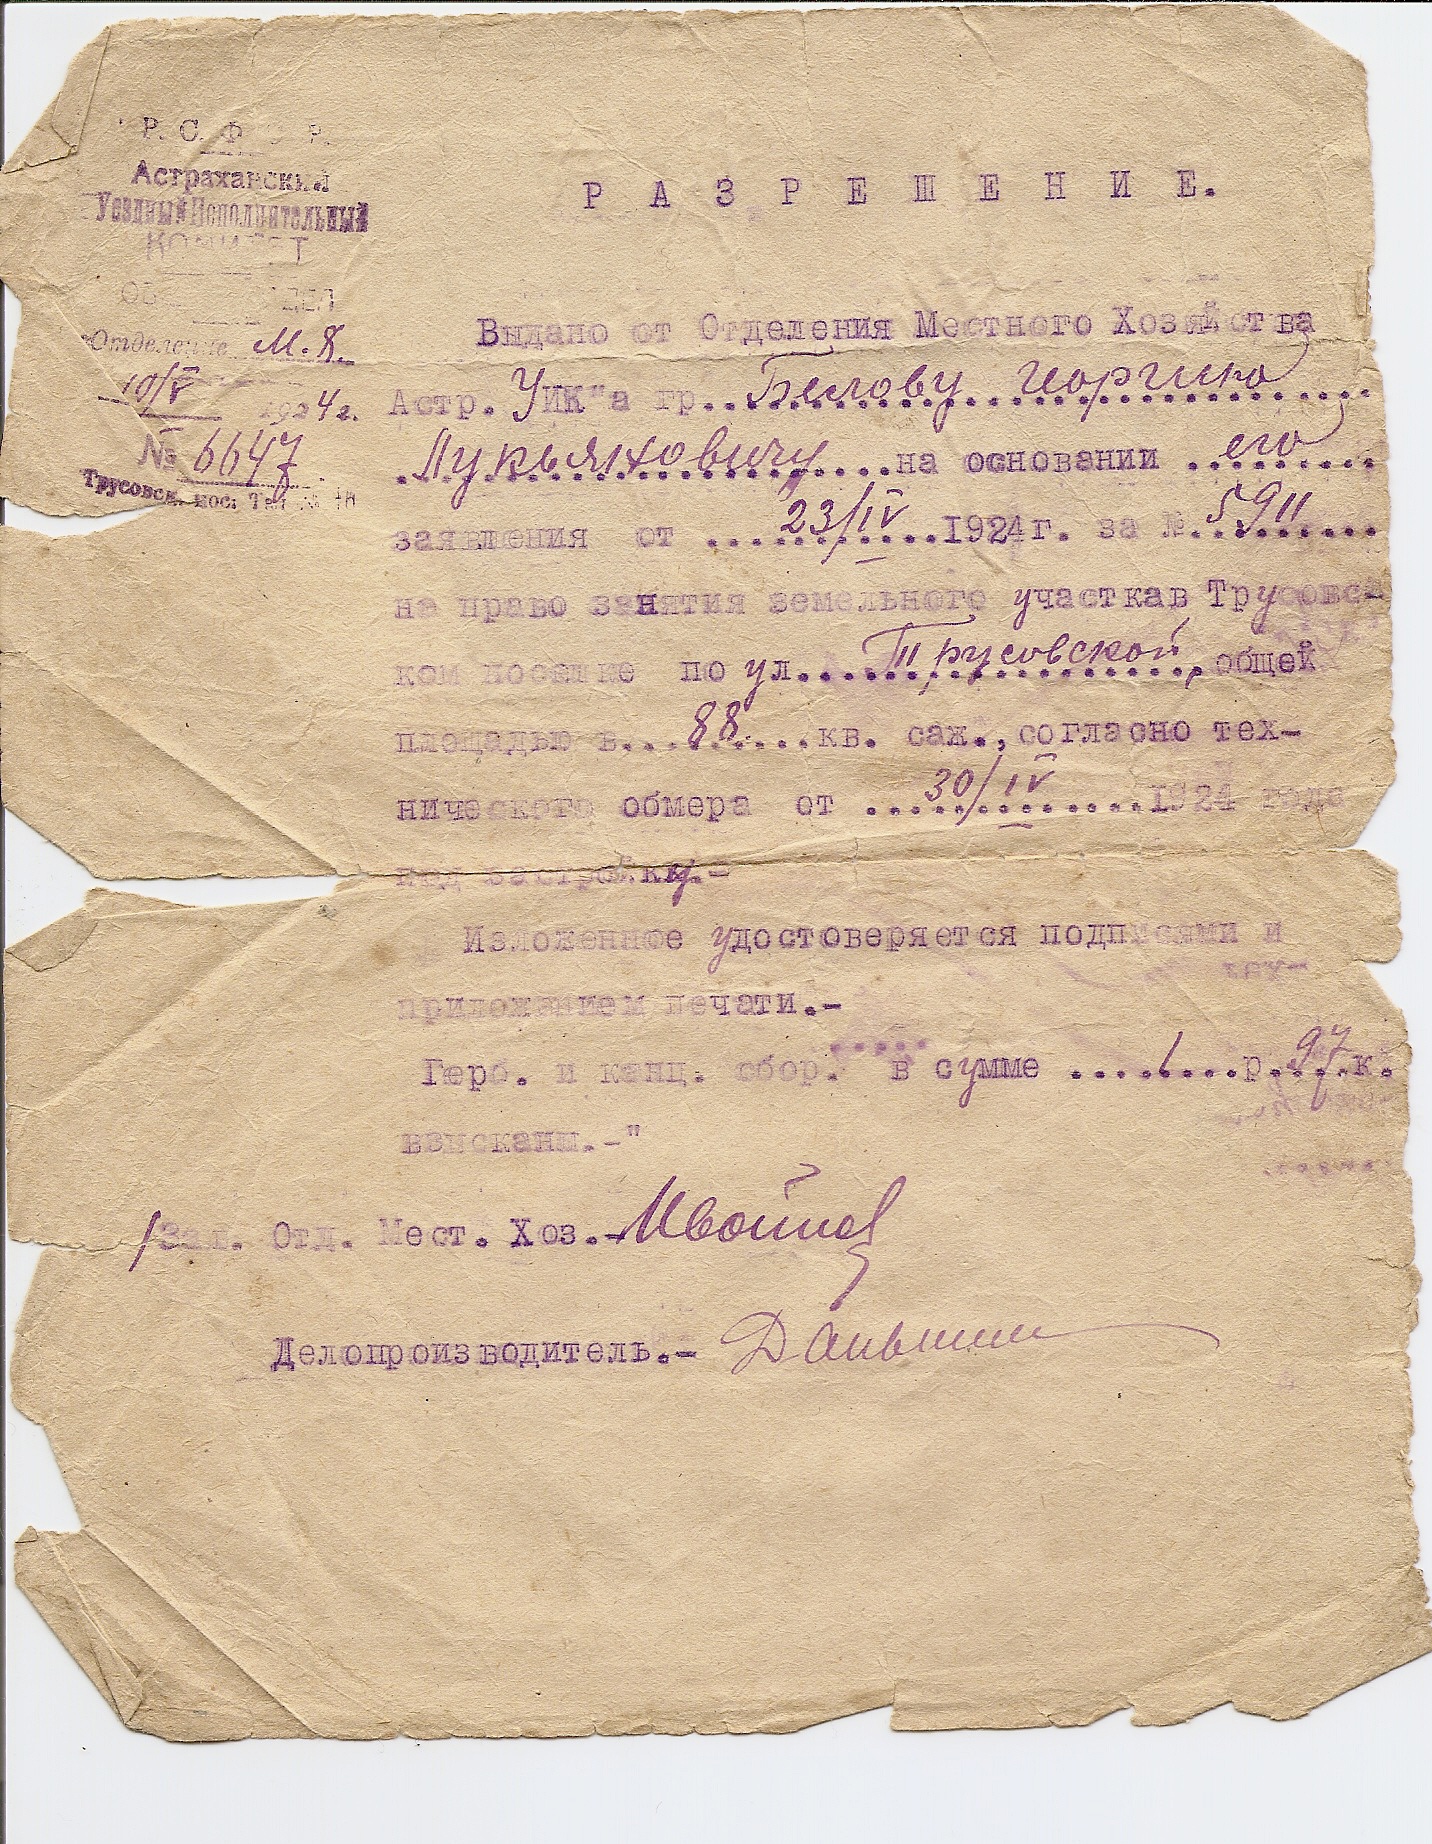 Р. С. Ф. С. Р.
Астраханский
Уездный Исполнительный
КОМИТЕТ
Отделение М.Х.
10/V 1924 г.
№ 6647
Трусовск. пос.
РАЗРЕШЕНИЕ.
Выдано от Отделения Местного Хозяйства
Астр. УИК"а гр. Белову Георгию
Лукьяновичу на основании его
заявления от 23/IV 1924 г. за №. 5911
на право занятия земельного участкав Трусовс-
ком поселке по ул. Трусовской, общей
площадью в 88 кв. саж., согласно тех-
нического обмера от 30/IV 1924 года
под застройку.-
Изложенное удостоверяется подписями и
приложением печати.-
Герб. и канц. сбор. в сумме 1 р. 97 к.
взысканы.-"
Зав. Отд. Мест. Хоз.-
Делопроизводитель.-